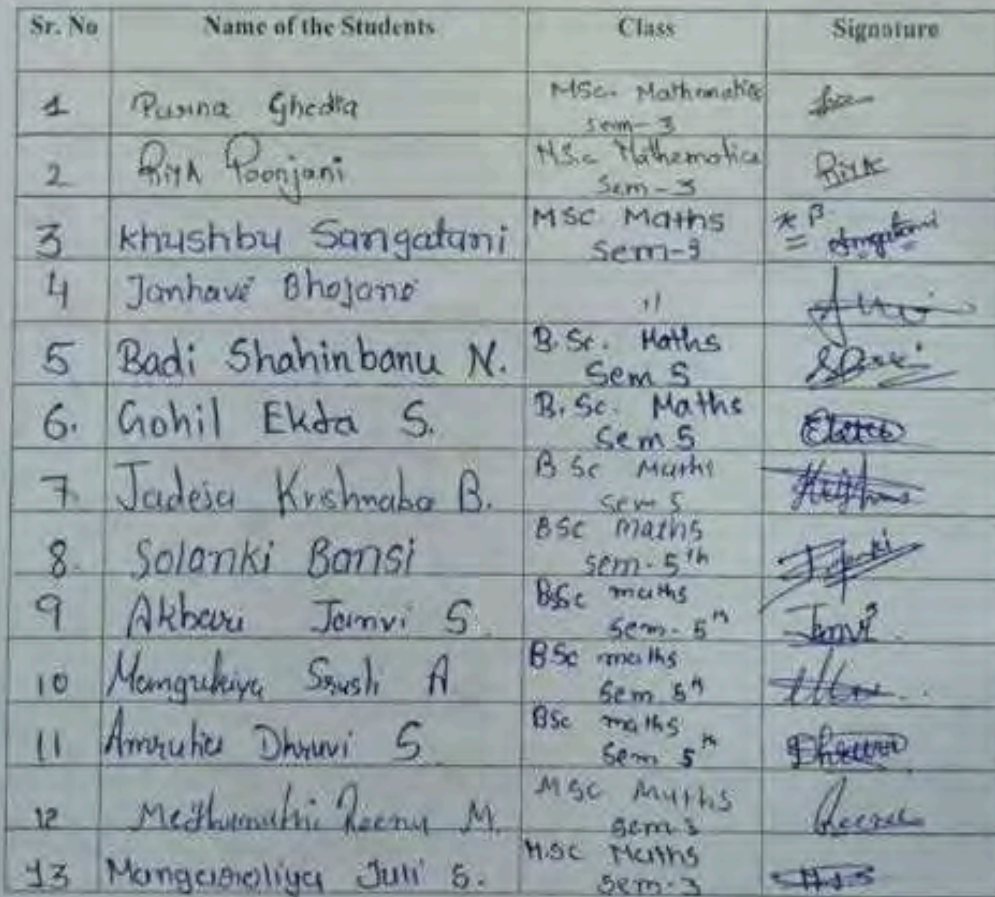 Sr. No Name of the Students Class Signature
1 Purna Ghedia MSc. Mathematics
sem-3
2 Riya Poonjani M.Sc Mathematics Riya
Sem-3
3 Khushbu Sangatani MSC Maths
Sem-3
4 Janhavi Bhojani "
5 Badi Shahinbanu N. B.Sc. Maths
Sem 5
6. Gohil Ekta S. B.Sc. Maths
Sem 5
7. Jadeja Krishnaba B. B Sc Maths
Sem 5
8. Solanki Bansi BSc maths
sem-5th
9 Akbari Janvi S. BSc maths Janvi
sem-5th
10 Mangukiya Srushti A BSc maths
Sem 5th
11 Amrutia Dhruvi S BSc maths
Sem 5th
12 Reenu M. MSC Maths
sem 3
13 Juli S. M.SC Maths
sem-3